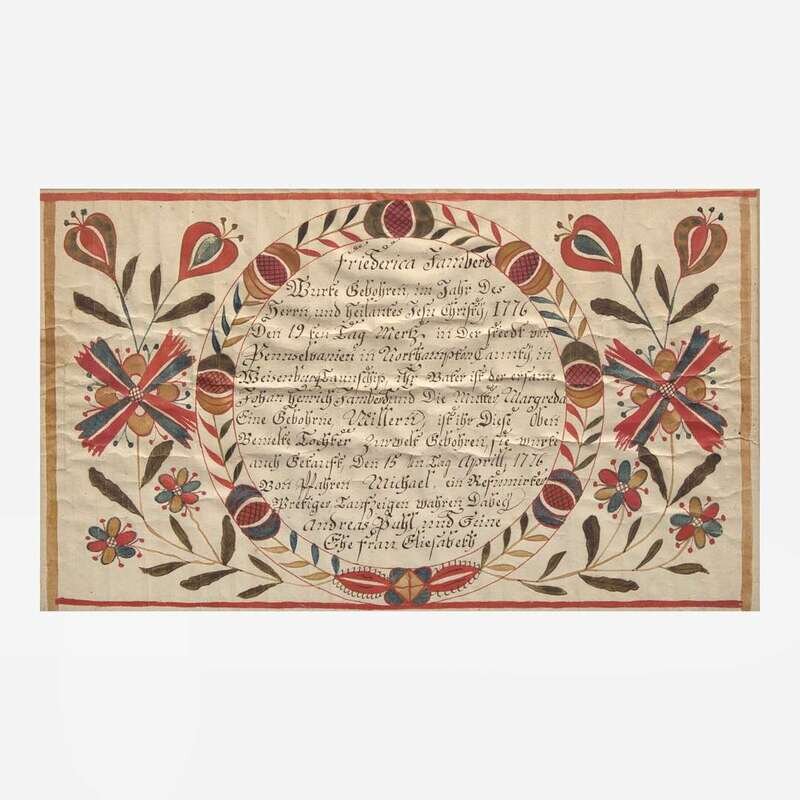 Friederica Jamberd
Wurte Gebohren im Jahr Des
Herrn und heilantes Jesu Christy, 1776
Den 19 ten Tag Mertz, in Der steedt von
Pennselvanien in Northampton Caunty, in
Weisenburg Taunschip, ihr Vater ist der ersame
Johan Henrich Jamberd und Die Mutter Margreda
Eine Gebohrne Millern, ist ihr Diese Oben
Bemelte Tochter Zur welt Gebohren, sie wurte
auch Getauft Den 15 ten Tag Aprill, 1776
Von Pfahren Michael, ein Refformirter
Prediger Taufzeigen wahren Dabey
Andreas Pahl und Seine
Ehe frau Eliesabeth